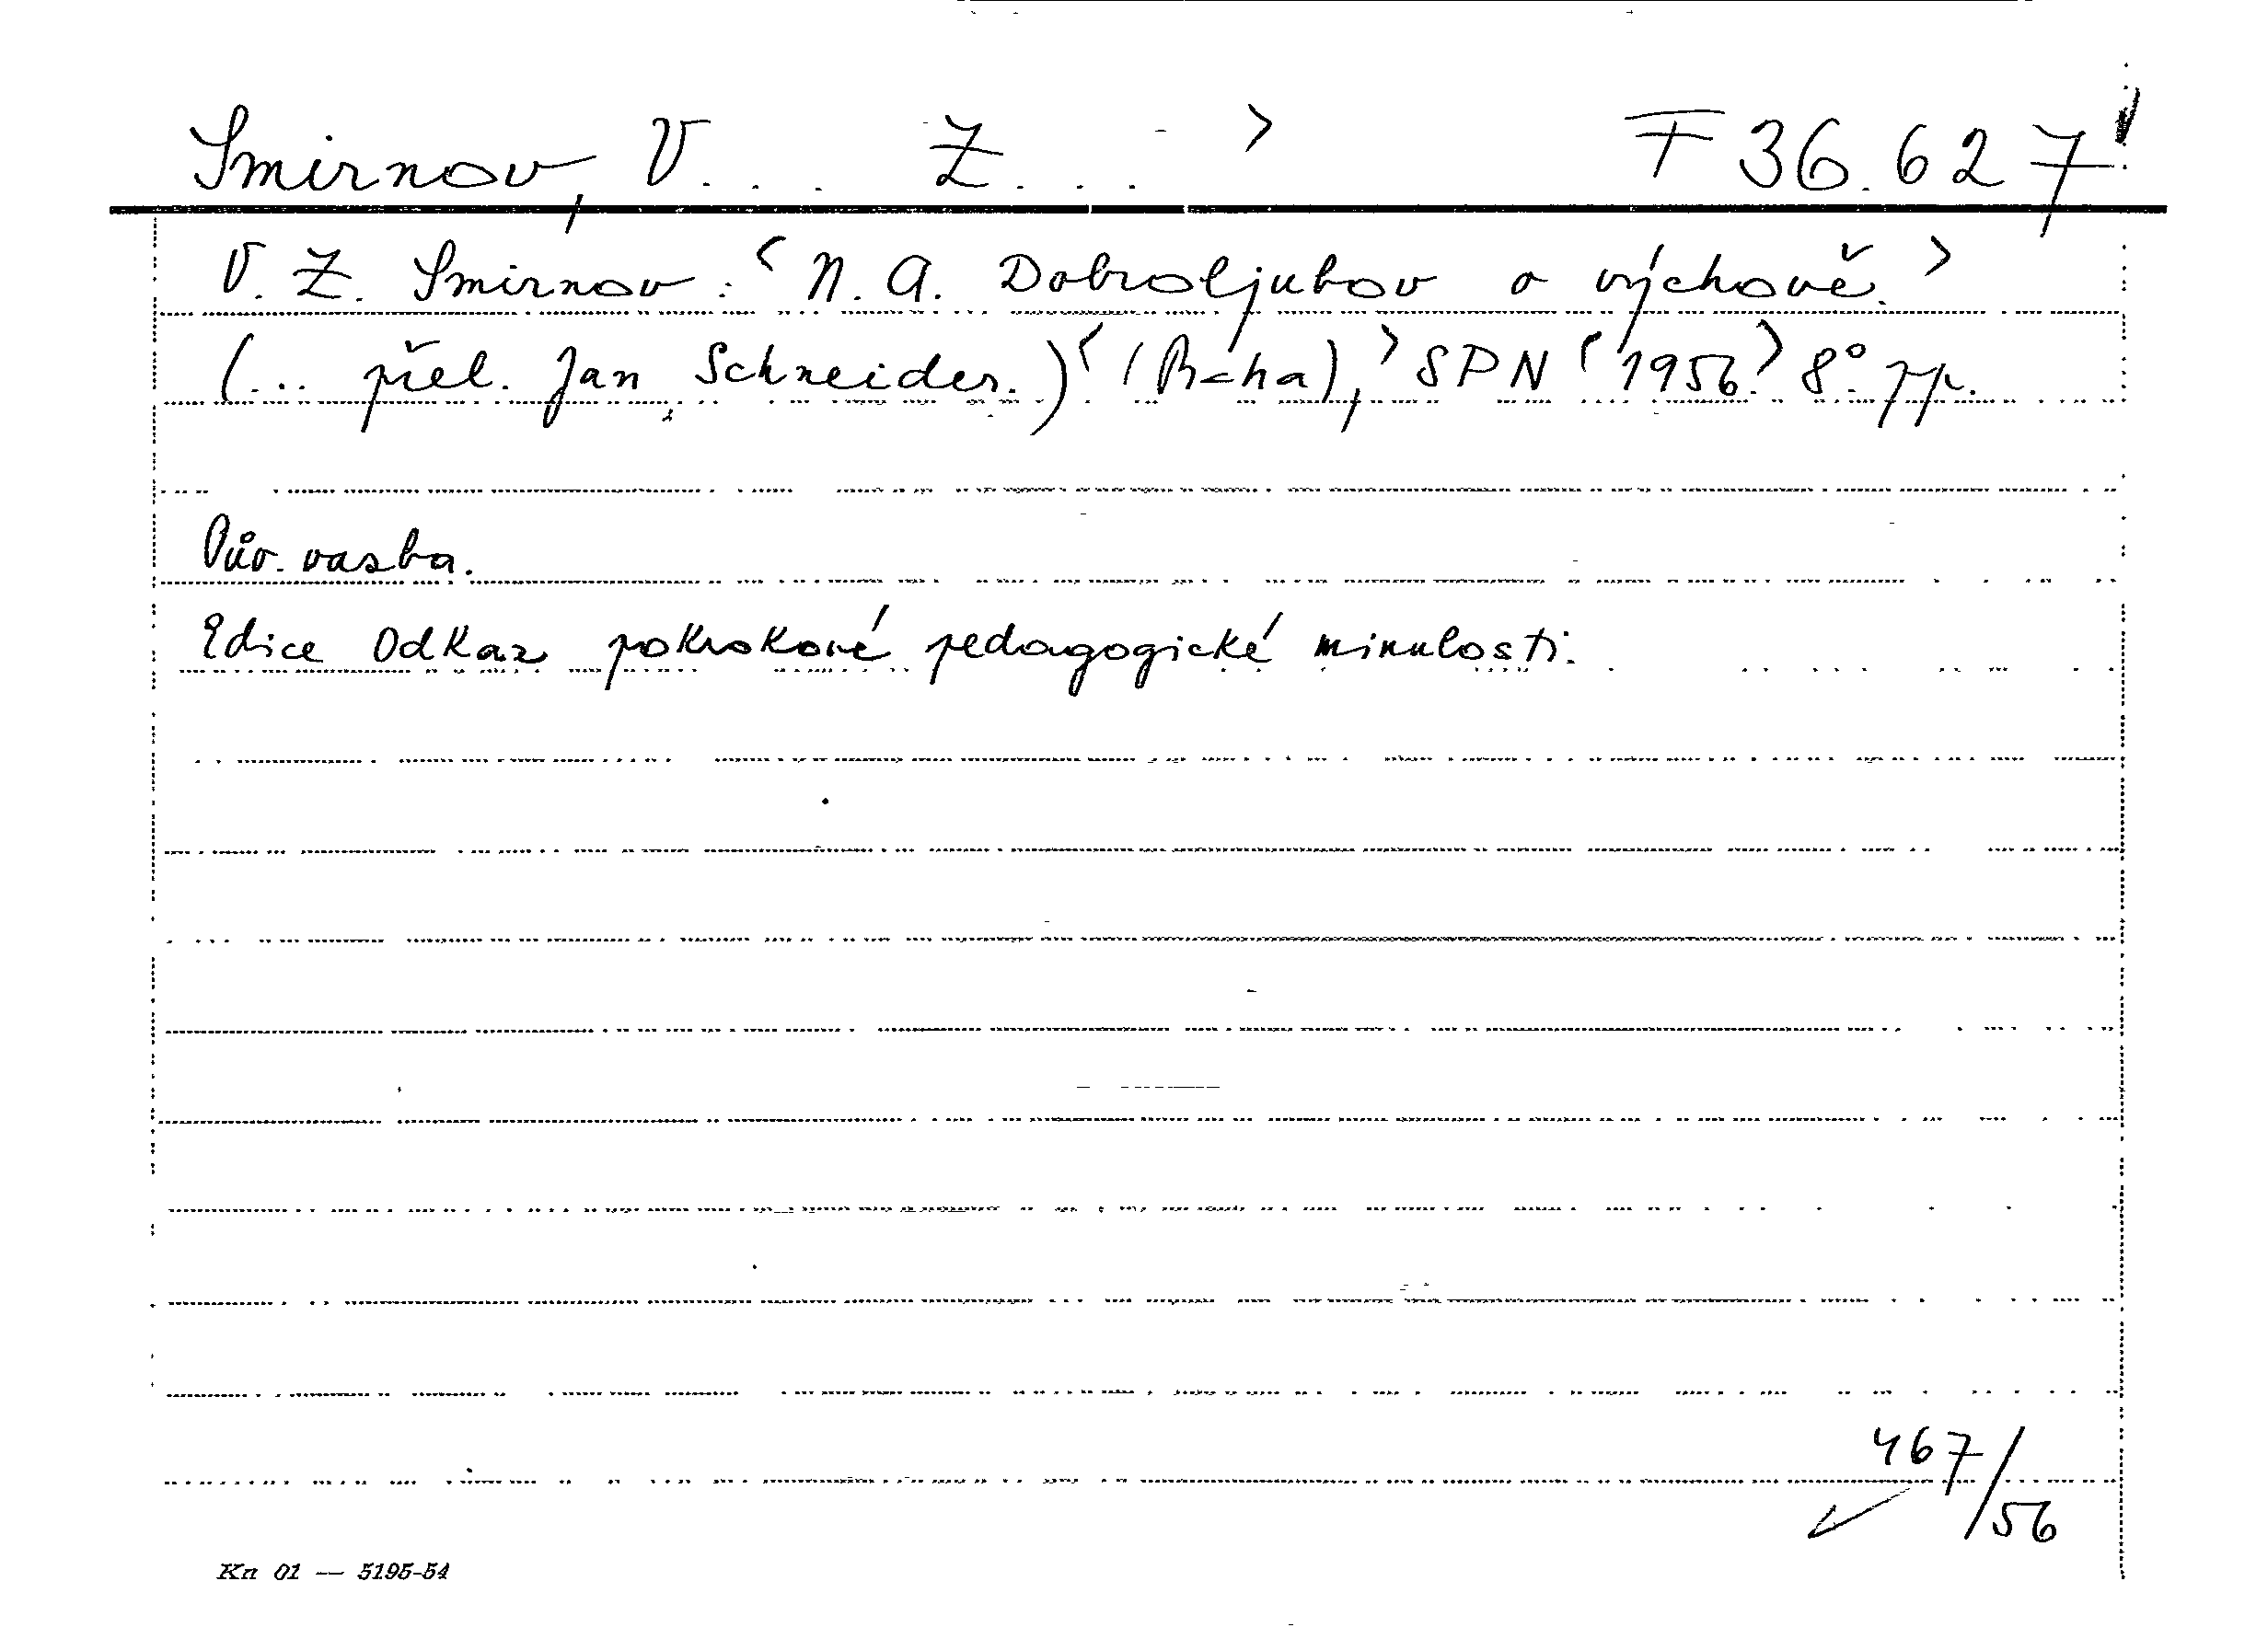 Smirnov, V. . . Z. . . > F 36.627
V. Z. Smirnov: < N. A. Dobroljubov o výchově. >
(... přel. Jan Schneider.) < (Praha), > SPN < 1956. > 8° pp.
Pův. vazba.
Edice Odkaz pokrokové pedagogické minulosti.
467/56
Kn 01 — 5195-54